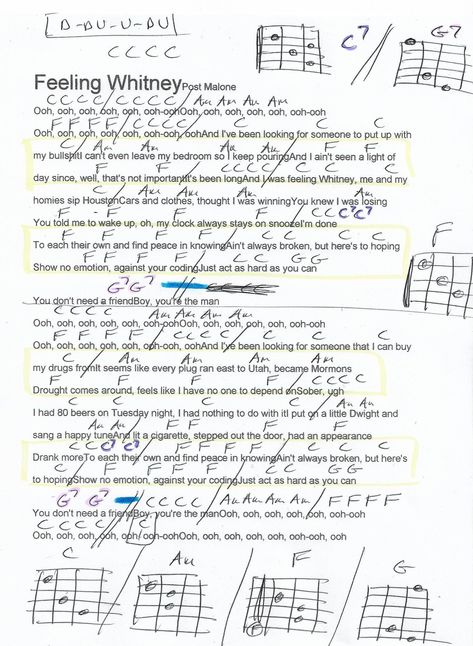 D-DU-U-DU
C C C C
C7
G7
Feeling Whitney Post Malone
C C C C / C C C C / Am Am Am Am
Ooh, ooh, ooh, ooh, ooh, ooh-oohOoh, ooh, ooh, ooh, ooh, ooh-ooh
F F F F / C C C C C
Ooh, ooh, ooh, ooh, ooh-ooh, oohAnd I've been looking for someone to put up with
C Am Am Am F F
my bullshitI can't even leave my bedroom so I keep pouringAnd I ain't seen a light of
F F C C C
day since, well, that's not importantIt's been longAnd I was feeling Whitney, me and my
C Am Am Am
homies sip HoustonCars and clothes, thought I was winningYou knew I was losing
F - F F F / C C C7 C7
You told me to wake up, oh, my clock always stays on snoozeI'm done
F F F F C C C
To each their own and find peace in knowingAin't always broken, but here's to hoping
F F F F C C G G
Show no emotion, against your codingJust act as hard as you can
G7 G7
You don't need a friendBoy, you're the man
C C C C Am Am Am Am
Ooh, ooh, ooh, ooh, ooh, ooh-oohOoh, ooh, ooh, ooh, ooh, ooh-ooh
F F F F / C C C C C
Ooh, ooh, ooh, ooh, ooh-ooh, oohAnd I've been looking for someone that I can buy
C Am Am Am
my drugs fromIt seems like every plug ran east to Utah, became Mormons
F F F F C C C C
Drought comes around, feels like I have no one to depend onSober, ugh
C C C C Am Am
I had 80 beers on Tuesday night, I had nothing to do with itI put on a little Dwight and
Am Am F F F F
sang a happy tuneAnd lit a cigarette, stepped out the door, had an appearance
C C C7 C7 F F F F C C C
Drank moreTo each their own and find peace in knowingAin't always broken, but here's
C F F F F C C G G
to hopingShow no emotion, against your codingJust act as hard as you can
G7 G7 C C C C / Am Am Am Am / F F F F
You don't need a friendBoy, you're the manOoh, ooh, ooh, ooh, ooh-ooh
C C C C C
Ooh, ooh, ooh, ooh, ooh, ooh-oohOoh, ooh, ooh, ooh, ooh-ooh, ooh
F
C
Am
F
G